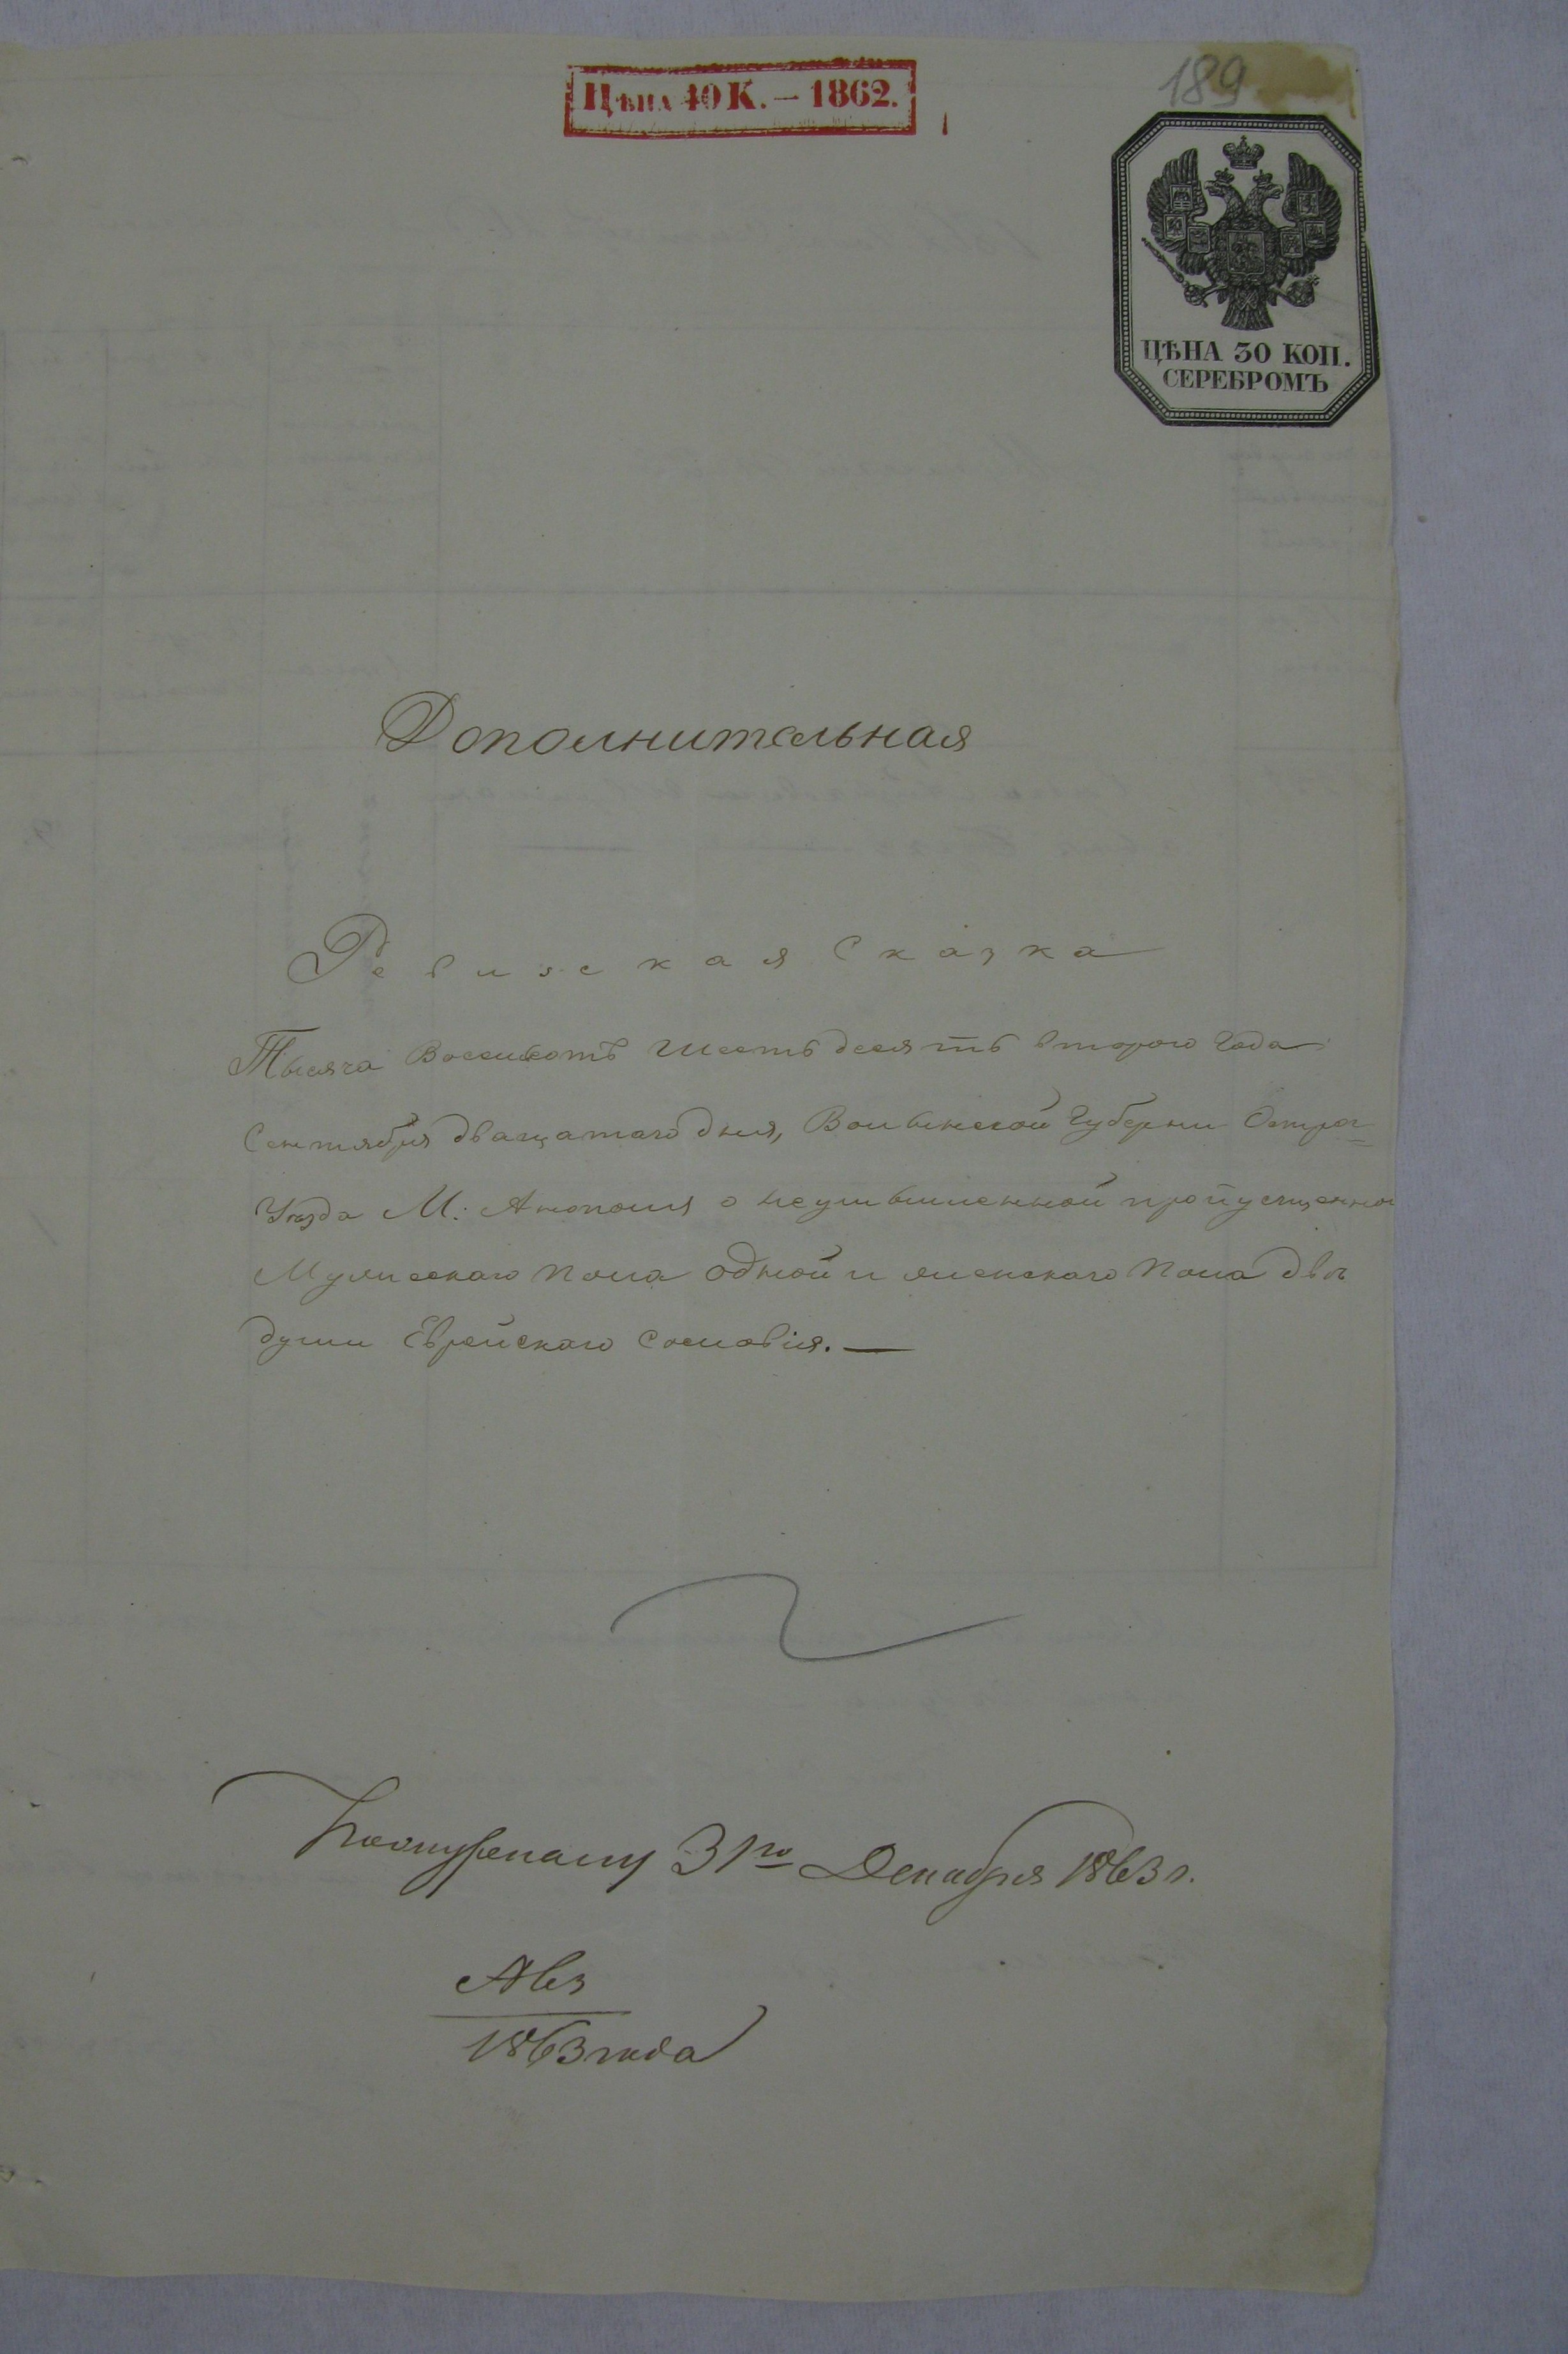 Цѣна 40 К. — 1862.
189
ЦѢНА 30 КОП.
СЕРЕБРОМЪ
Дополнительная
Ревизская Сказка
Тысяча Восемьсотъ Шестьдесятъ втораго Года
Сентября двацатаго дня, Волынской Губерни Острог=
Уезда М: Аннополя о неумышленной пропущенной
Мужескаго пола одной и женскаго пола двѣ
души Еврейскаго Сословія. —
31го Декабря 1863 г.
1863 года